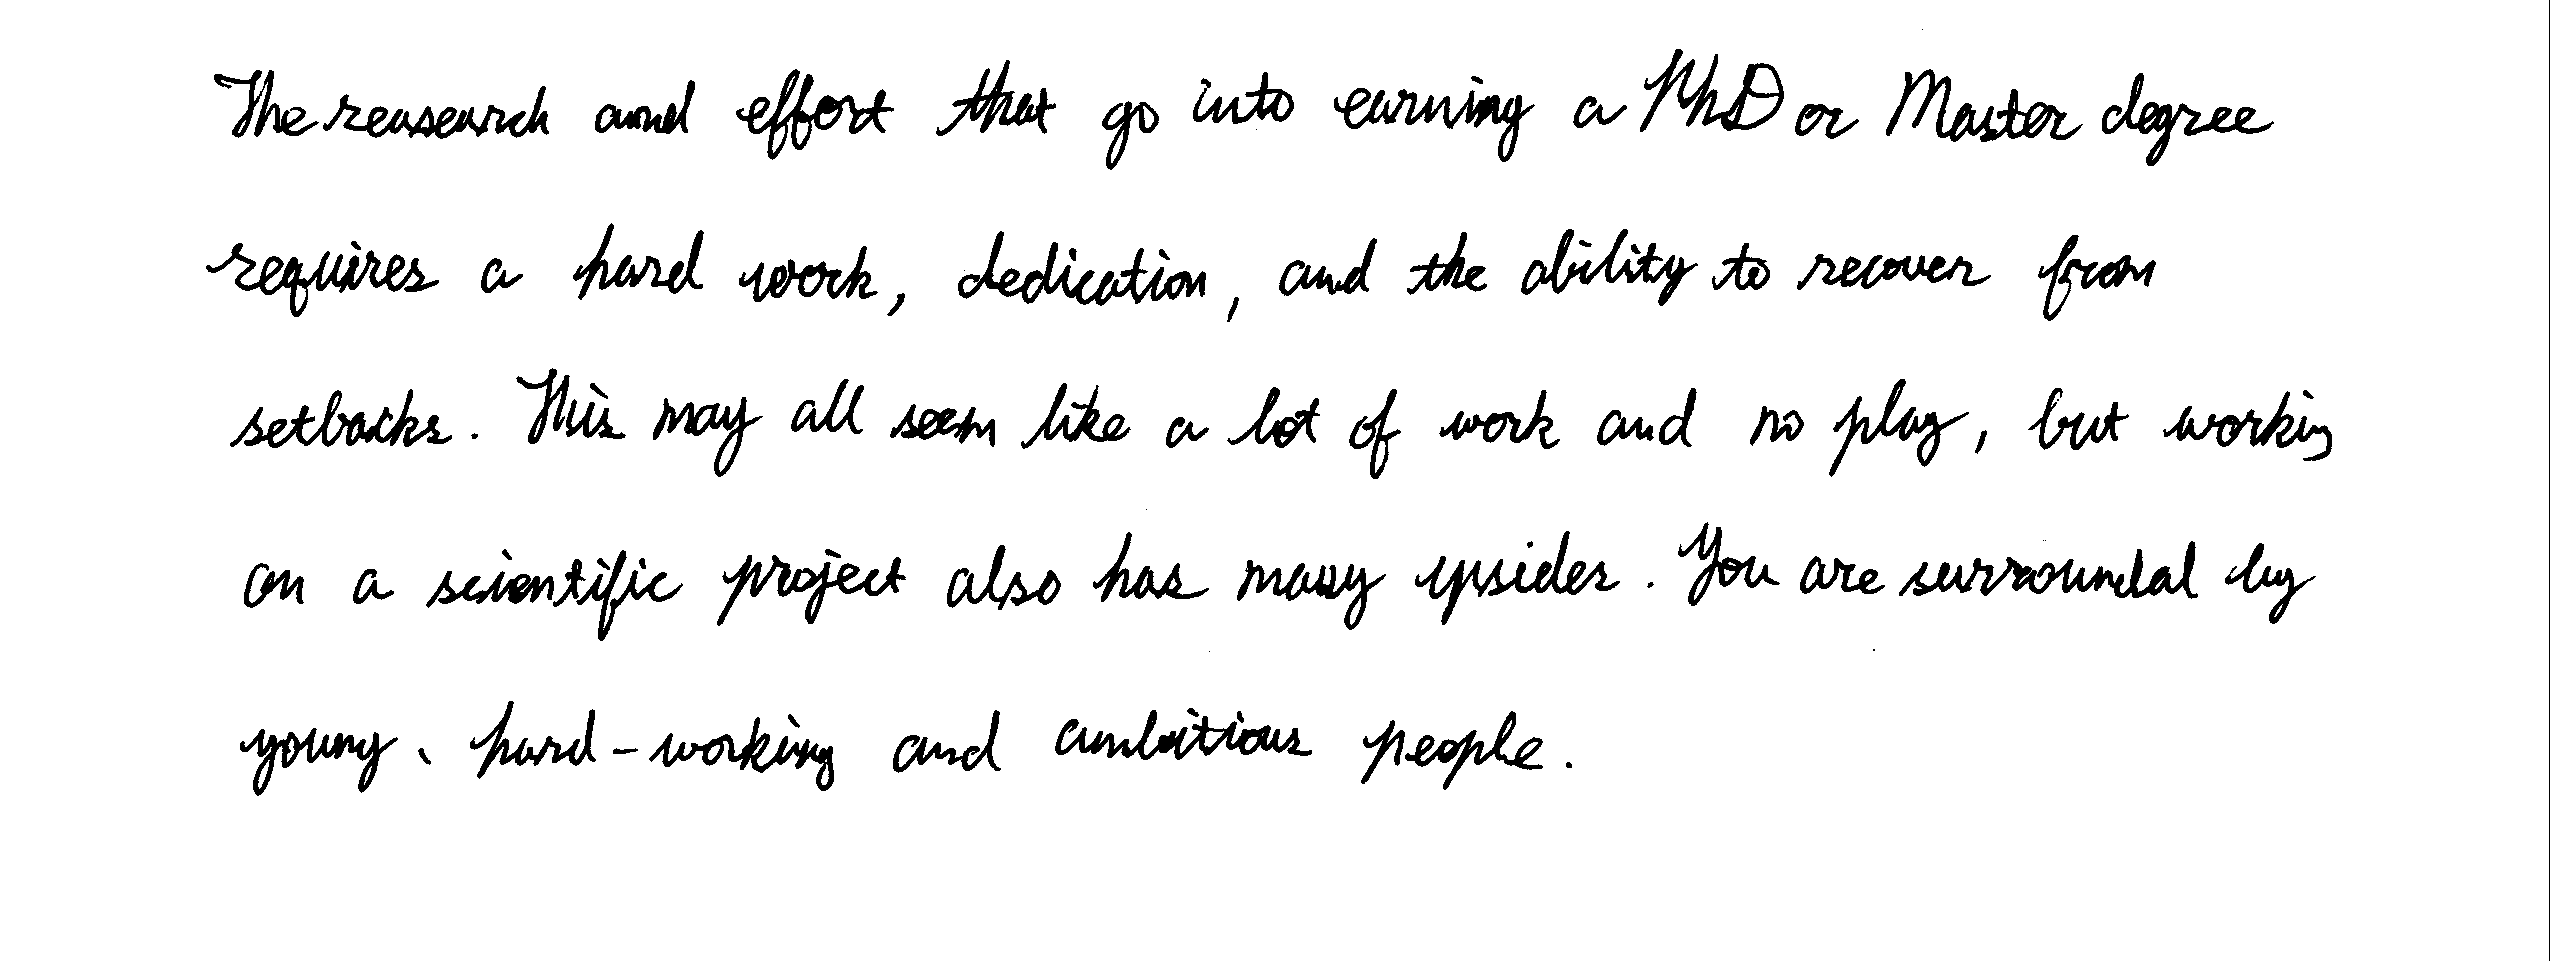 The reasearch and effort that go into earning a PhD or Master degree
requires a hard work, dedication, and the ability to recover from
setbacks. This may all seem like a lot of work and no play, but working
on a scientific project also has many upsides. You are surrounded by
young, hard-working and ambitious people.